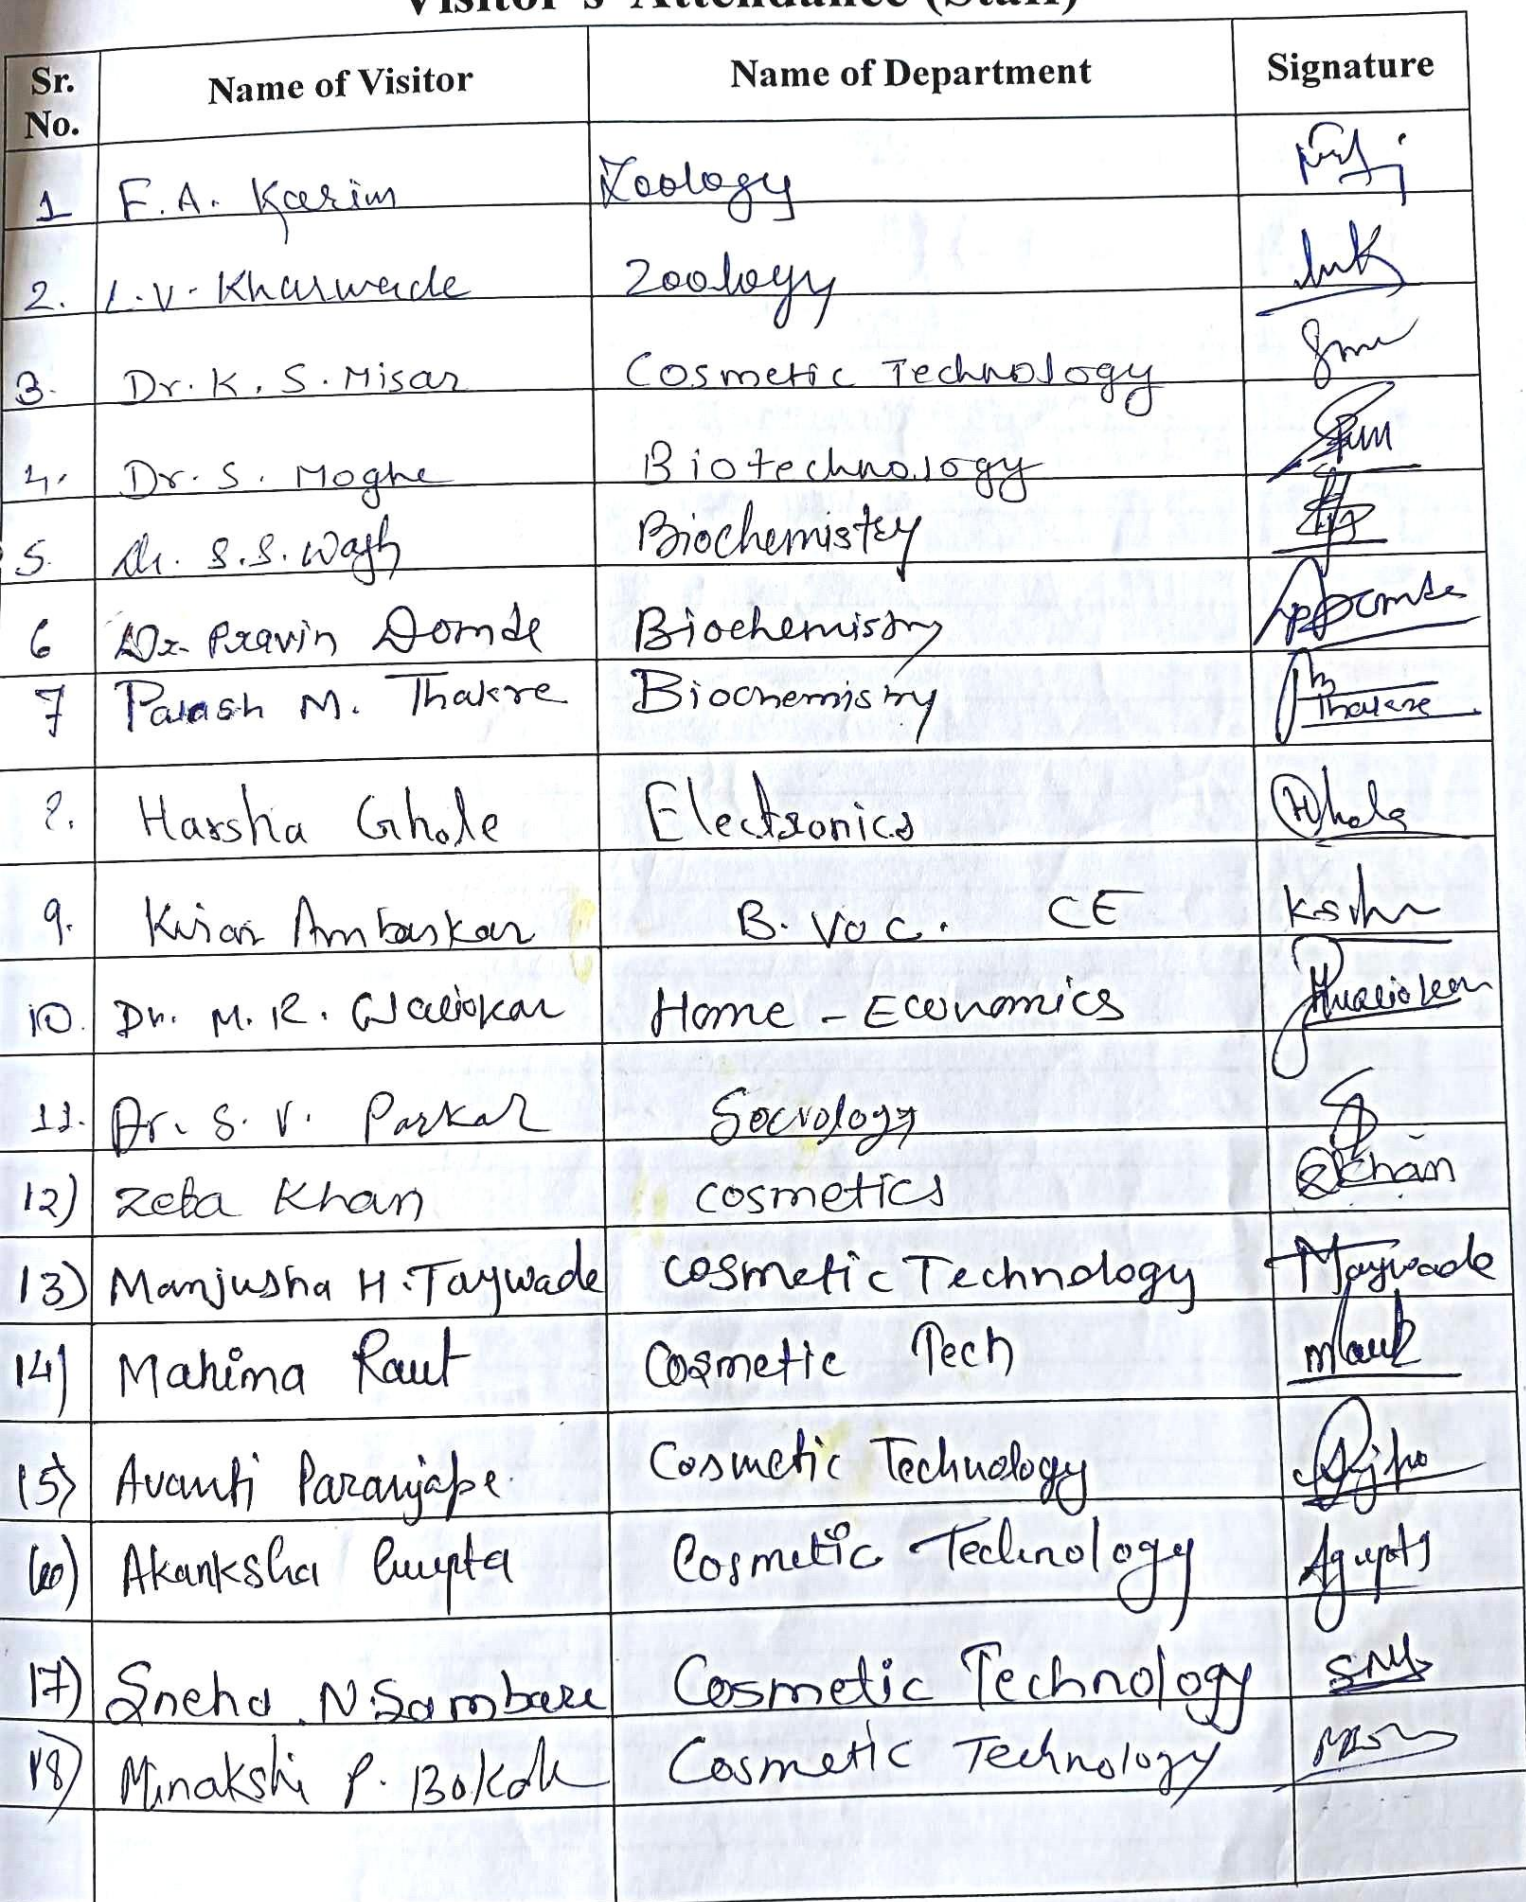 Visitor's Attendance (Staff)
Sr. No. Name of Visitor Name of Department Signature
1 F.A. Karim Zoology
2. L.V. Kharwade Zoology
3. Dr. K. S. Misar Cosmetic Technology
4. Dr. S. Moghe Biotechnology
5. Dr. S.S. Wagh Biochemistry
6 Dr. Pravin Domde Biochemistry
7 Palash M. Thakre Biochemistry Thakre
8. Harsha Ghole Electronics Ghole
9. Kiran Ambaskar B. Voc. CE
10. Dr. M. R. Waliokar Home - Economics
11. Dr. S. V. Parkar Sociology
12) Zeba Khan cosmetics ZKhan
13) Manjusha H. Taywade Cosmetic Technology MTaywade
14) Mahima Raut Cosmetic Tech mRaut
15) Avanti Paranjape. Cosmetic Technology
16) Akanksha Gupta Cosmetic Technology Agupta
17) Sneha N. Sambare Cosmetic Technology
18) Minakshi P. Cosmetic Technology